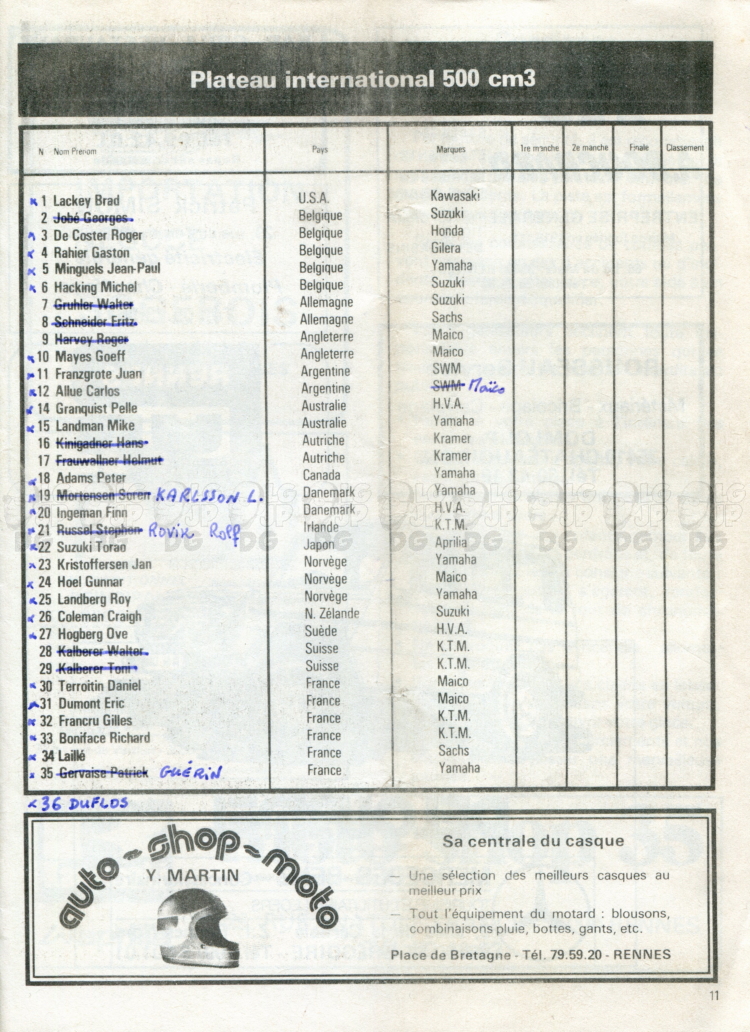 Plateau international 500 cm3
N Nom Prénom Pays Marques 1re manche 2e manche Finale Classement
1 Lackey Brad U.S.A. Kawasaki
2 Jobé Georges Belgique Suzuki
3 De Coster Roger Belgique Honda
4 Rahier Gaston Belgique Gilera
5 Minguels Jean-Paul Belgique Yamaha
6 Hacking Michel Belgique Suzuki
7 Gruhler Walter Allemagne Suzuki
8 Schneider Fritz Allemagne Sachs
9 Harvey Roger Angleterre Maico
10 Mayes Goeff Angleterre Maico
11 Franzgrote Juan Argentine SWM
12 Allue Carlos Argentine SWM Maïco
14 Granquist Pelle Australie H.V.A.
15 Landman Mike Australie Yamaha
16 Kinigadner Hans Autriche Kramer
17 Frauwallner Helmut Autriche Kramer
18 Adams Peter Canada Yamaha
19 Mortensen Soren KARLSSON L. Danemark Yamaha
20 Ingeman Finn Danemark H.V.A.
21 Russel Stephen Rovik Rolf Irlande K.T.M.
22 Suzuki Torao Japon Aprilia
23 Kristoffersen Jan Norvège Yamaha
24 Hoel Gunnar Norvège Maico
25 Landberg Roy Norvège Yamaha
26 Coleman Craigh N. Zélande Suzuki
27 Hogberg Ove Suède H.V.A.
28 Kalberer Walter Suisse K.T.M.
29 Kalberer Toni Suisse K.T.M.
30 Terroitin Daniel France Maico
31 Dumont Eric France Maico
32 Francru Gilles France K.T.M.
33 Boniface Richard France K.T.M.
34 Laillé France Sachs
35 Gervaise Patrick GUÉRIN France Yamaha
36 DUFLOS
auto-shop-moto
Y. MARTIN
Sa centrale du casque
— Une sélection des meilleurs casques au
meilleur prix
— Tout l'équipement du motard : blousons,
combinaisons pluie, bottes, gants, etc.
Place de Bretagne - Tél. 79.59.20 - RENNES
11